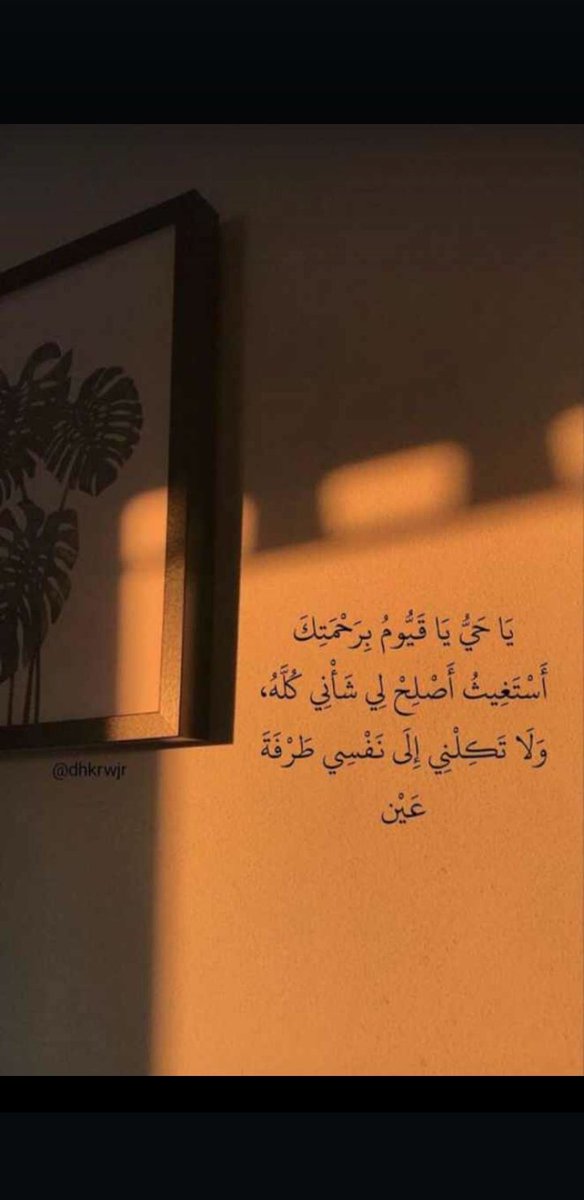 يَا حَيُّ يَا قَيُّومُ بِرَحْمَتِكَ
أَسْتَغِيثُ أَصْلِحْ لِي شَأْنِي كُلَّهُ،
وَلَا تَكِلْنِي إِلَى نَفْسِي طَرْفَةَ
عَيْن
@dhkrwjr